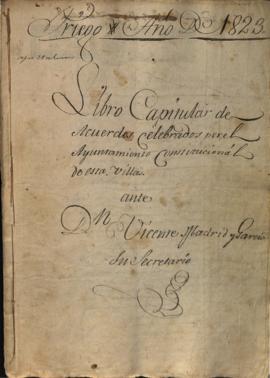 Priego Año De 1823.
Libro Capitular de
Acuerdos celebrados por el
Ayuntamiento Constitucional
de esta villa.
ante
Dn Vicente Madrid y Garcia
Su Secretario